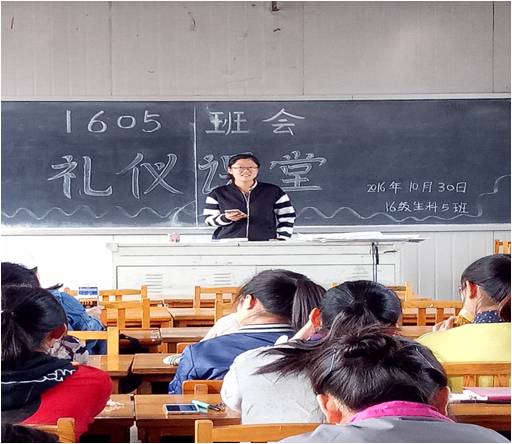 1605 班会
礼仪课堂
2016年10月30日
16级生科5班